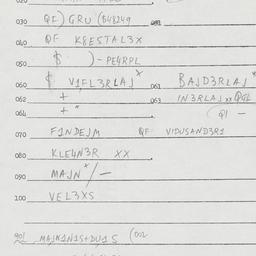 030 QF) GRU (848249
040 QF K8ESTAL3X
050 $ )-PE4RPL
060 $ V1FL3RLAJ* 061 BAJD3RLAJ*
062 + 063 IN3RLAJ xx
064 + " (Q1 -
070 F1NDEJM QF VIDUSAND3R1
080 KLE4N3R XX
090 MAJN*/-
100 VEL3XS
901 MAJN1N1S+DU1S (002